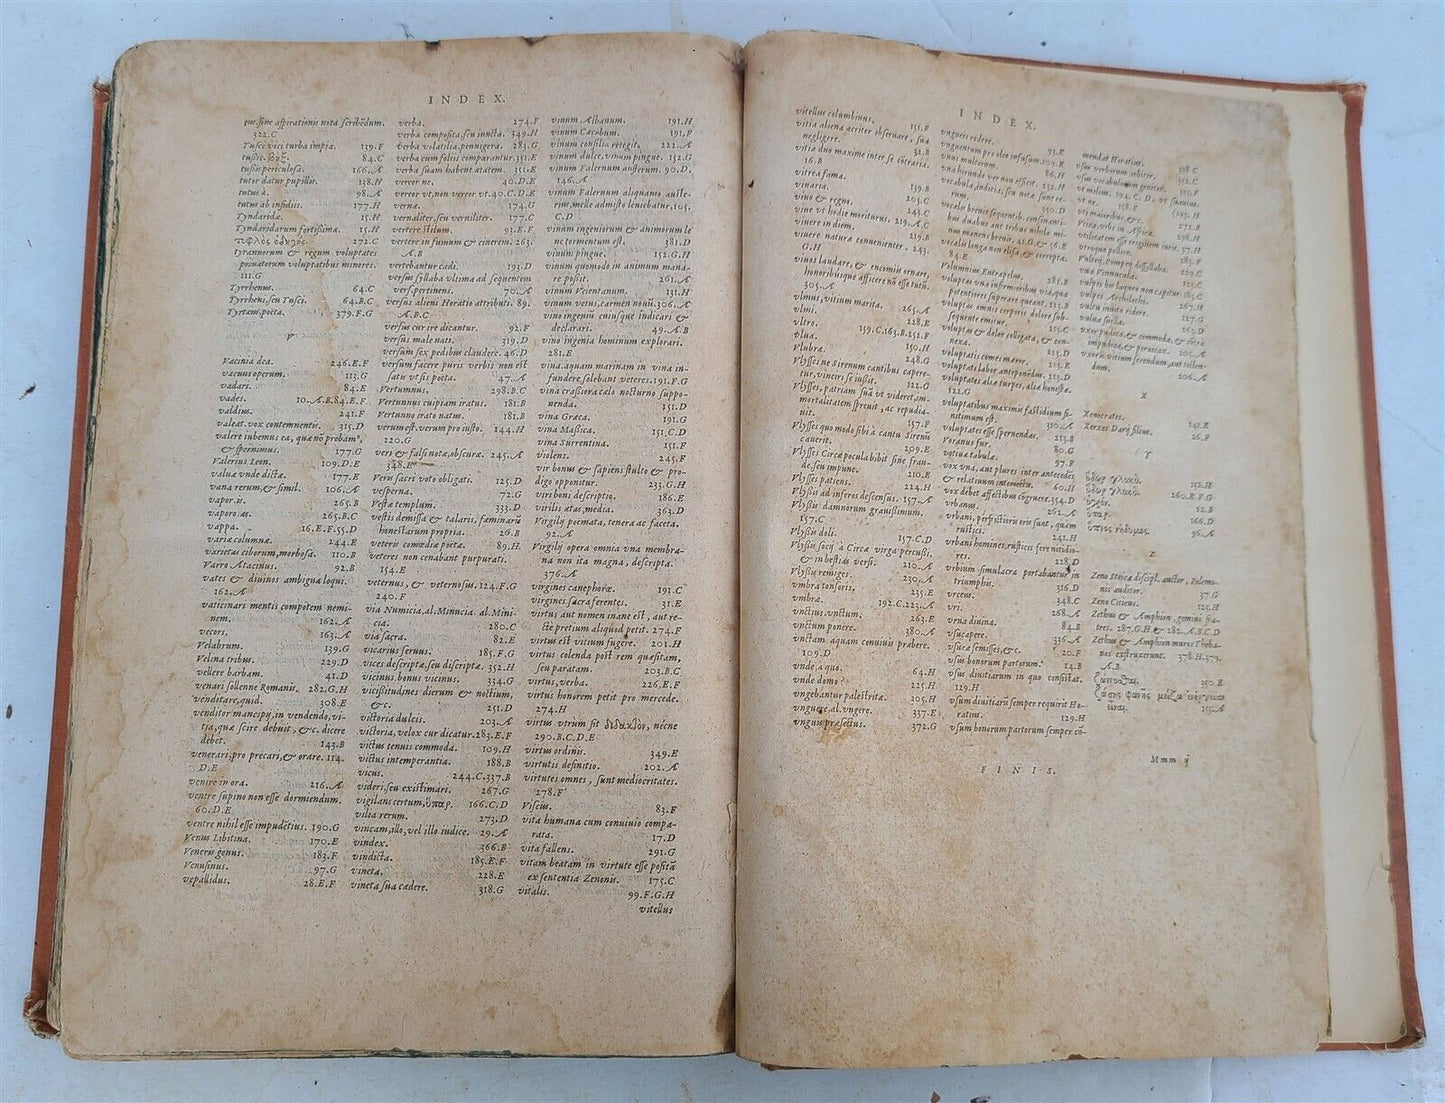 INDEX.
pus, sine aspirationis nota scribēdum.
322.C
Tusci vici turba impia. 139.F
tussis. 84.C
tussis periculosa. 166.A
tutor datur pupillis. 138.H
tutus à. 98.A
tutus ab insidiis. 177.H
Tyndaridæ. 15.H
Tyndaridarum fortissima. 15.H
272.C
tyrannorum & regum voluptates
priuatorum voluptatibus minores.
111.G
Tyrrhenus. 64.C
Tyrrheni, seu Tusci. 64.B.C
Tyrtæus, poëta. 379.F.G
V
Vacinia dea. 246.E.F
vacuus operum. 113.G
vadari. 84.E
vades. 10.A.B.84.E.F
valdius. 241.F
valeat. vox contemnentis. 315.D
valere iubemus ea, quæ nō probam⁹,
& spernimus. 177.G
Valerius Leon. 109.D.E
valuæ vnde dictæ. 177.E
vana rerum, & simil. 106.A
vapor. is. 265.B
vaporo. as. 265.B.C
vappa. 16.E.F.55.D
variæ columnæ. 244.E
varietas ciborum, morbosa. 110.B
Varro Atacinus. 92.B
vates & diuinos ambigua loqui.
162.A
vaticinari mentis compotem nemi-
nem. 162.A
vecors. 163.A
Velabrum. 139.G
Velina tribus. 229.D
vellere barbam. 41.D
venari sollenne Romanis. 282.G.H
venditare, quid. 308.E
venditor mancipij, in vendendo, vi-
tia, quæ scire debuit, &c. dicere
debet. 143.B
venerari, pro precari, & orare. 114.
D.E
venire in ora. 216.A
ventre supino non esse dormiendum.
60.D.E
ventre nihil esse impudētius. 190.G
Venus Libitina. 170.E
Veneris genus. 183.F
Venusinus. 97.G
vepallidus. 28.E.F
verba. 274.F
verba composita, seu iuncta. 349.H
verba volatilia, pennigera. 283.G
verba cum foliis comparantur. 351.E
verba suam habent ætatem. 351.E
vereor ne. 40.D.E
vereor vt. non vereor vt. 40.C.D.E
vernæ. 174.G
vernaliter, seu verniliter. 177.C
vertere stilum. 93.E.F
vertere in fumum & cinerem. 263.
A.B
vertebantur cadi. 193.D
versus syllaba vltima ad sequentem
vers. pertinens. 70.A
versus alieni Horatio attributi. 89.
A.B.C
versus cur ire dicantur. 92.F
versus malè nati. 319.D
versum sex pedibus claudere. 46.D
versum facere puris verbis non est
satis vt sis poëta. 47.A
Vertumnus. 298.B.C
Vertunnus cuipiam iratus. 181.B
Vertunno irato natus. 181.B
verum est. verum pro iusto. 144.H
220.G
veris & falsis notæ, obscuræ. 245.A
348.E
Veris sacri voto obligati. 125.D
vesperna. 72.G
Vestæ templum. 333.D
vestis demissa & talaris, fæminarū
honestarum propria. 26.B
veteris comœdiæ poëtæ. 89.H
veteres non cenabant purpurati.
154.E
veternus, & veternosus. 124.F.G
240.F
via Numicia, al. Minucia. al. Mini-
cia. 280.C
via sacra. 82.E
vicarius seruus. 185.F.G
vices descriptæ, seu discriptæ. 352.H
vicinus bonus vicinus. 334.G
vicissitudines dierum & noctium,
&c. 251.D
victoria dulcis. 203.A
victoria, velox cur dicatur. 283.E.F
victus tenuis commoda. 109.H
victus intemperantia. 188.B
vicus. 244.C.337.B
videri, seu existimari. 267.G
vigilans certum, ὕπαρ. 166.C.D
vilia rerum. 273.D
vincam, illo, vel illo iudice. 29.A
vindex. 366.B
vindicta. 185.E.F
vineta. 228.E
vineta sua cædere. 318.G
vinum Albanum. 191.H
vinum Cæcubum. 191.F
vinum consilia retegit. 222.A
vinum dulce, vinum pingue. 152.G
vinum Falernum austerum. 90.D.
146.A
vinum Falernum aliquanto auste-
rius, melle admisto leniebatur. 105.
C.D
vinum ingeniorum & animorum le
ne tormentum est. 381.D
vinum pingue. 152.G.H
vinum quomodo in animum mana-
re possit. 261.A
vinum Veientanum. 131.H
vinum vetus, carmen nouū. 306.A
vino ingenium cuiusque indicari &
declarari. 49.A.B
vino ingenia hominum explorari.
281.E
vina, aquam marinam in vina in-
fundere solebant veteres. 191.F.G
vina crassiora cælo nocturno suppo-
nenda. 151.D
vina Græca. 191.G
vina Massica. 151.C.D
vina Surrentina. 151.F
violens. 245.F
vir bonus & sapiens: stulto & pro-
digo opponitur. 233.G.H
viri boni descriptio. 186.E
virilis ætas, media. 363.D
Virgilij poëmata, tenera ac faceta.
92.A
Virgilij opera omnia vna membra-
na non ita magna, descripta.
376.A
virgines canephoræ. 191.C
virgines sacra ferentes. 31.E
virtus aut nomen inane est, aut re-
ctè pretium aliquod petit. 274.F
virtus est vitium fugere. 201.H
virtus colenda post rem quæsitam,
seu paratam. 203.B.C
virtus, verba. 226.E.F
virtus honorem petit pro mercede.
274.H
virtus vtrum sit διδακτὸν, nécne
290.B.C.D.E
virtus ordinis. 349.E
virtutis definitio. 202.A
virtutes omnes, sunt mediocritates.
278.F
Viscus. 83.F
vita humana cum conuiuio compa-
rata. 17.D
vita fallens. 291.G
vitam beatam in virtute esse positā
ex sententia Zenonis. 175.C
vitalis. 99.F.G.H
vitellus
INDEX.
vitellus columbinus. 151.F
vitia aliena acriter obseruare, sua
negligere. 31.B
vitia duo maxime inter se cōtraria.
16.B
vitrea fama.
viuaria. 139.B
viuo & regno. 203.C
viue vt hodie moriturus. 219.A.C
viuere in diem. 219.B
viuere naturæ conuenienter. 243.
G.H
viuos laudare, & encomiis ornare,
honoribúsque afficere nō esse tutū.
305.A
vlmus, vitium marita. 265.A
vlmi. 228.E
vltro. 159.C.163.B.252.F
vlua. 150.H
Vlubræ. 248.G
Vlysses ne Sirenum cantibus capere-
tur, vinciri se iussit. 122.G
Vlysses, patriam suā vt videret, im-
mortalitatem spreuit, ac repudia-
uit. 157.F
Vlysses quo modo sibi à cantu Sirenū
cauerit. 109.E
Vlysses Circæ pocula bibit sine frau-
de, seu impune. 210.E
Vlysses patiens. 224.H
Vlyssis ad inferos descensus. 157.A
Vlyssis damnorum grauissimum.
157.C
Vlyssis doli. 157.C.D
Vlyssis socij à Circæ virga percussi,
& in bestias versi. 210.A
Vlyssis remiges. 230.A
vmbra tonsoris. 235.E
vmbræ. 192.C.223.A
vnctius. vnctum. 263.E
vnctum ponere. 380.A
vnctam aquam conuiuis præbere.
109.D
vnde, à quo. 64.H
vnde domo? 225.H
vngebantur palæstritæ. 205.H
vnguere, al. vngere. 337.E
vnguis præsectus. 372.G
vngueis rodere. 93.E
vnguentum pro oleo infusum. 109.E
vnus multorum. 86.H
vna hirundo ver non efficit. 232.H
vocabula, indicia, seu notæ sunt re-
rum. 350.D
vocalis breuis sequentib. consonanti-
bus duabus aut tribus nihilo mi-
nus manens breuis. 41.G & 56.E
vocalis longa non elisa, & correpta.
84.E
Volumnius Eutrapelus. 281.B
voluptas
potentiores superare queant. 213.B
voluptas omnis corporis dolore sob-
sequente emitur. 213.C
voluptas & dolor colligata, & con-
nexa. 213.D
voluptatis comes mæror. 213.E
voluptatis labor antepenēdus. 213.D
voluptates aliæ turpes, aliæ honestæ.
122.G
voluptatibus maximis fastidium fi-
nitimum est. 310.A
voluptates esse spernendas. 213.B
Voranus fur. 80.G
votiua tabula. 97.F
vox vna, aut plures inter antecedēs
& relatiuum interiectæ. 60.H
vox debet affectibus cōgruere. 354.D
vrbanus. 262.A
vrbani, perfrictioris oris sunt, quam
rustici. 241.H
vrbanos homines, rusticis fere nitidio-
res. 228.D
vrbium simulacra portabantur in
triumphis. 316.D
vrceus. 348.C
vri. 268.A
vrna diuina. 84.B
vsucapere. 336.A
vsuræ semisses, &c. 20.F
vsus bonorum partorum. 14.B
vsus diuitiarum in quo consistat.
129.H
vsum diuitiarū semper requirit Ho-
ratius. 129.H
vsum bonorum partorum semper cō-
mendat Horatius. 338.C
vsus verborum arbiter. 352.C
vti mauioribus &c.
Vtica, vrbs in Africa. 298.H
vtroque pollice. 285.F
Vultei, Pompei dissyllaba. 229.C
vua Vennucula. 223.C
vulpes bis laqueo non capitur. 183.C
vulpes Archilochi. 267.H
vultu inuito ridere. 127.G
vulua suilla. 265.D
vxor pudica, & commoda, & cōtrà
impudica, & peruicax. 201.A
vxoris vitium ferendum, aut tollen-
dum. 206.A
X
Xenocrates. 242.E
Xerxes Darij filius. 26.F
Y
ὕδωρ γλυκύ. 152.H
ὕδωρ γλυκύ. 260.E.F.G
12.B
ὕπαρ. 166.D
ὕπνος ἥδυμος. 96.A
Z
Zeno Stoicæ discipl. auctor, Polemo-
nis auditor. 37.G
Zeno Citieus. 125.H
Zethus & Amphion, gemini fra-
tres. 287.G.H.& 282.A.B.C.D
Zethus & Amphion muros Theba-
nos extruxerunt. 378.H.379.
A.B
350.E
153.A
Mmm ij
FINIS.